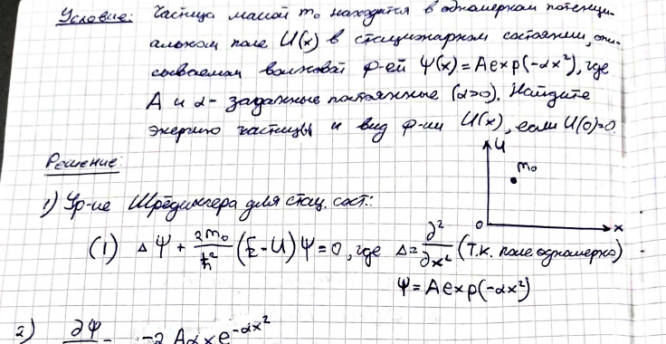 Условие: Частица массой m₀ находится в одномерном потенци-
альном поле U(x) в стационарном состоянии, опи-
сываемом волновой ф-ей Ψ(x) = A exp(-αx²), где
A и α - заданные постоянные (α>0). Найдите
энергию частицы и вид ф-ии U(x), если U(0)=0.
Решение
U
m₀
0
x
1) Ур-ие Шрёдингера для стац. сост.:
(1) ΔΨ + 2m₀/ħ² (E - U)Ψ = 0, где Δ = ∂²/∂x² (т.к. поле одномерно)
Ψ = A exp(-αx²)
2) ∂Ψ = -2Aαxe^(-αx²)